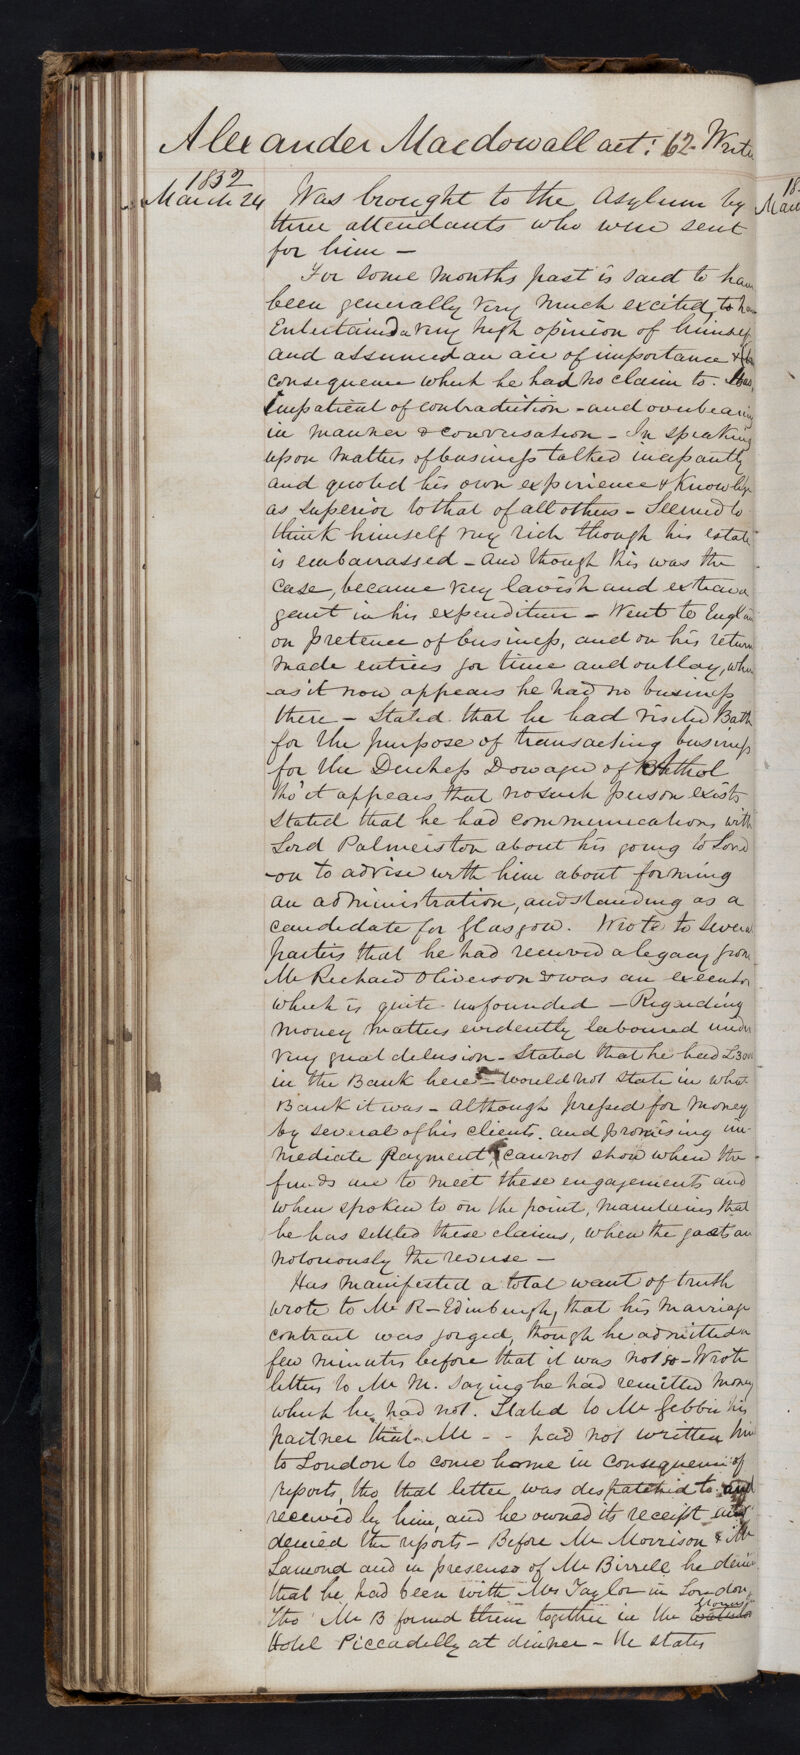 Alexander Macdowall aet: 62. Write
1832
March 24 Was brought to the Asylum by
three attendants who were sent
for him —
For some months past is said to hav
been generally very much excited, to h
Entertained a very high opinion of himself
and assumed an air of importance &
consequence which he had no claim to. Was
impatient of contradiction - and overbearing
in manner & conversation - In speaking
upon matters of business talked incessantly
and quoted his own experience & knowledge
as superior to that of all others - Seemed to
think himself very rich though his estate
is embarrassed - and though this was the
case, became very lavish and extrava
gant in his expenditure - Went to England
on pretence of business, and on his return
made entries for time and outlay, wher
-as it now appears he had no business
there - Stated that he had visited Bath
for the purpose of transacting business
for the Duchess Dowager of Athol
tho' it appears that no such person exists
Stated that he had communications with
Lord Palmerston about his going to Lond
-on to advise with him about forming
an administration, and standing as a
candidate for Glasgow. Wrote to several
parties that he had received a legacy from
Mr Richard Oliverson & was an executor
which is quite unfounded - Regarding
money matters evidently laboured under
very great delusion - Stated that he had £300
in the Bank here - would not state in what
Bank it was - Although pressed for money
by several of his clients. and promising im-
mediate payment, cannot show when the
funds are to meet these engagements and
when spoken to on the point, maintains that
he has settled these claims, when the facts are
notoriously the reverse —
Has manifested a total want of truth
wrote to Mr R - Edinburgh, that his marriage
contract was forged, though he admitted a
few minutes before that it was not so - Wrote
letters to Mr M. saying he had remitted money
which he had not. Stated to Mr Gebbie his
partner that Mr - - had not written him
to London to come home in consequence of
reports, tho that letter was despatched to and
received by him, and he owned its receipt and
denied the reports - Before Mr Morrison & Mr
Lamond and in presence of Mr Birrell he denied
that he had been with Mrs Taylor in London,
Tho' Mr B found them together in the
Hotel Piccadilly at dinner - He states
18
Mar